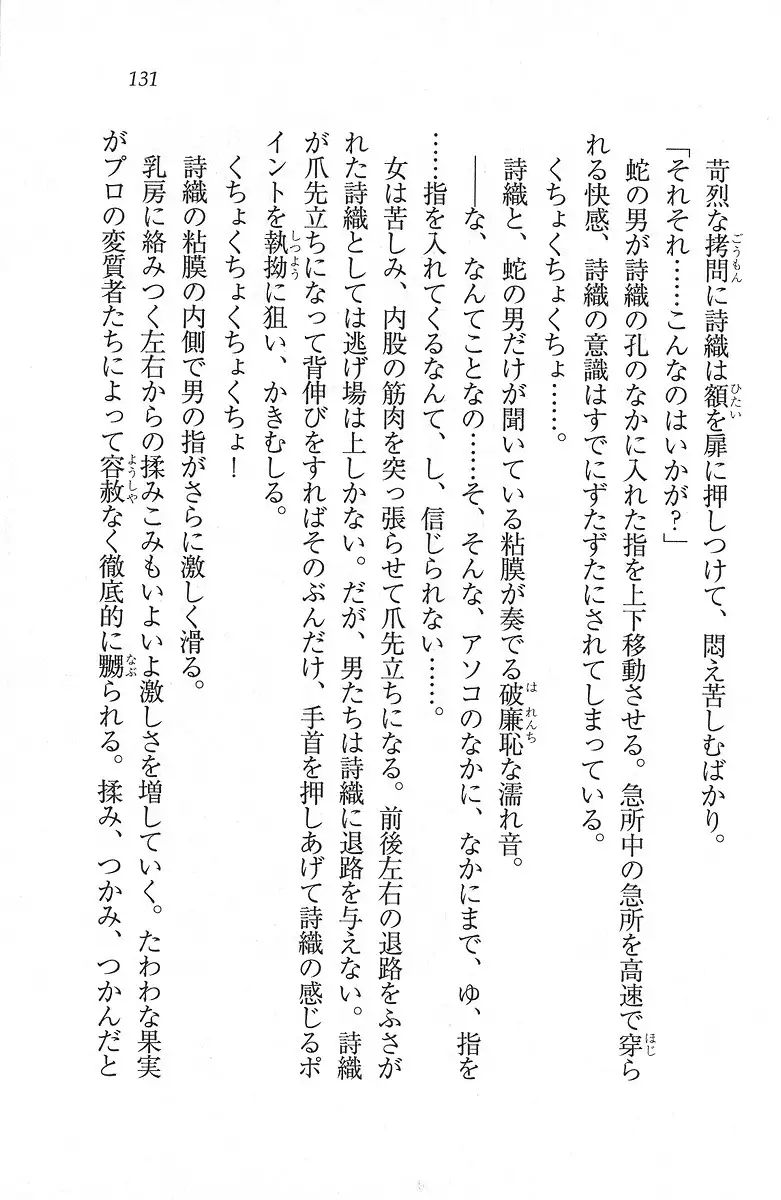 131
苛烈な拷問に詩織は額を扉に押しつけて、悶え苦しむばかり。
「それそれ……こんなのはいかが？」
蛇の男が詩織の孔のなかに入れた指を上下移動させる。急所中の急所を高速で穿ら
れる快感、詩織の意識はすでにずたずたにされてしまっている。
くちょくちょくちょ……。
詩織と、蛇の男だけが聞いている粘膜が奏でる破廉恥な濡れ音。
――な、なんてことなの……そ、そんな、アソコのなかに、なかにまで、ゆ、指を
……指を入れてくるなんて、し、信じられない……。
女は苦しみ、内股の筋肉を突っ張らせて爪先立ちになる。前後左右の退路をふさが
れた詩織としては逃げ場は上しかない。だが、男たちは詩織に退路を与えない。詩織
が爪先立ちになって背伸びをすればそのぶんだけ、手首を押しあげて詩織の感じるポ
イントを執拗に狙い、かきむしる。
くちょくちょくちょくちょ！
詩織の粘膜の内側で男の指がさらに激しく滑る。
乳房に絡みつく左右からの揉みこみもいよいよ激しさを増していく。たわわな果実
がプロの変質者たちによって容赦なく徹底的に嬲られる。揉み、つかみ、つかんだと